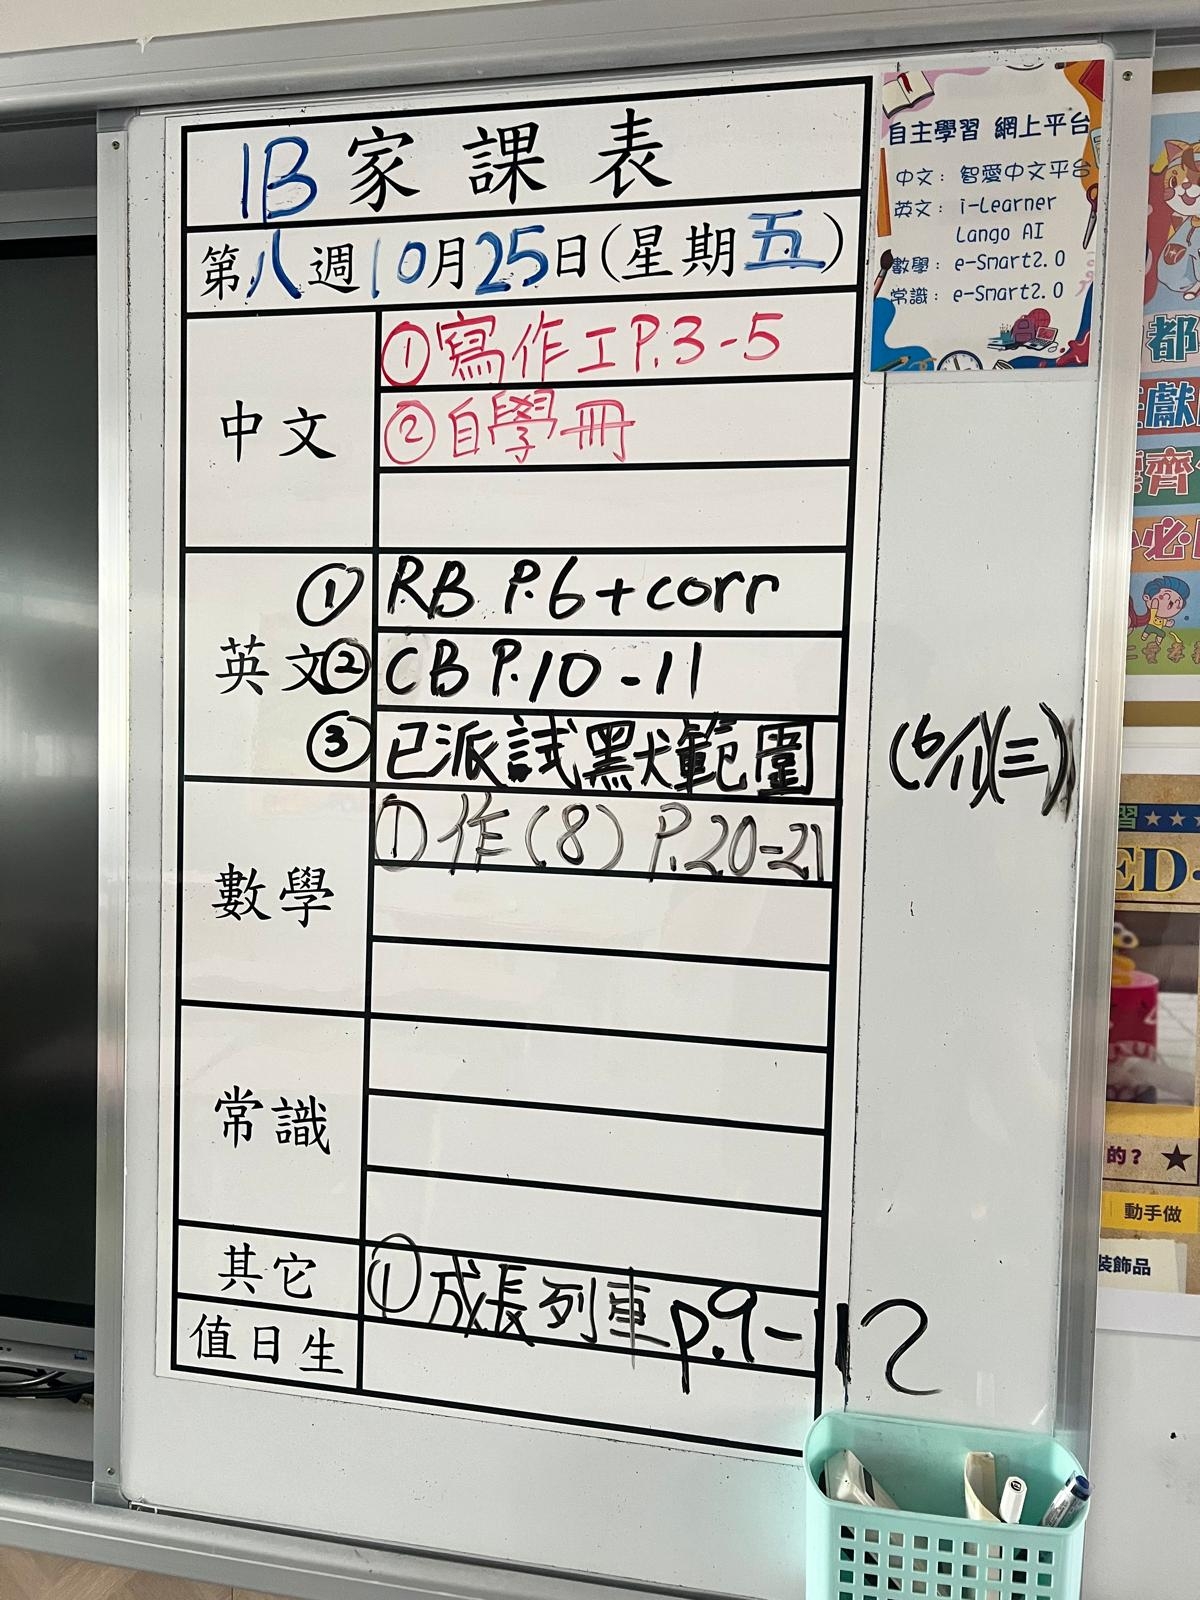 1B家課表
第八週10月25日(星期五)
中文
①寫作工P.3-5
②自學冊
英文
①RB P.6+corr
②CB P.10-11
③已派試默範圍 (6/11)(三)
數學
①作(8) P.20-21
常識
其它
①成長列車p.9-12
值日生
自主學習 網上平台
中文：智愛中文平台
英文：i-Learner
Lango AI
數學：e-Smart2.0
常識：e-Smart2.0
都
獻
齊
必
習★★★
ED-
的？★
動手做
裝飾品